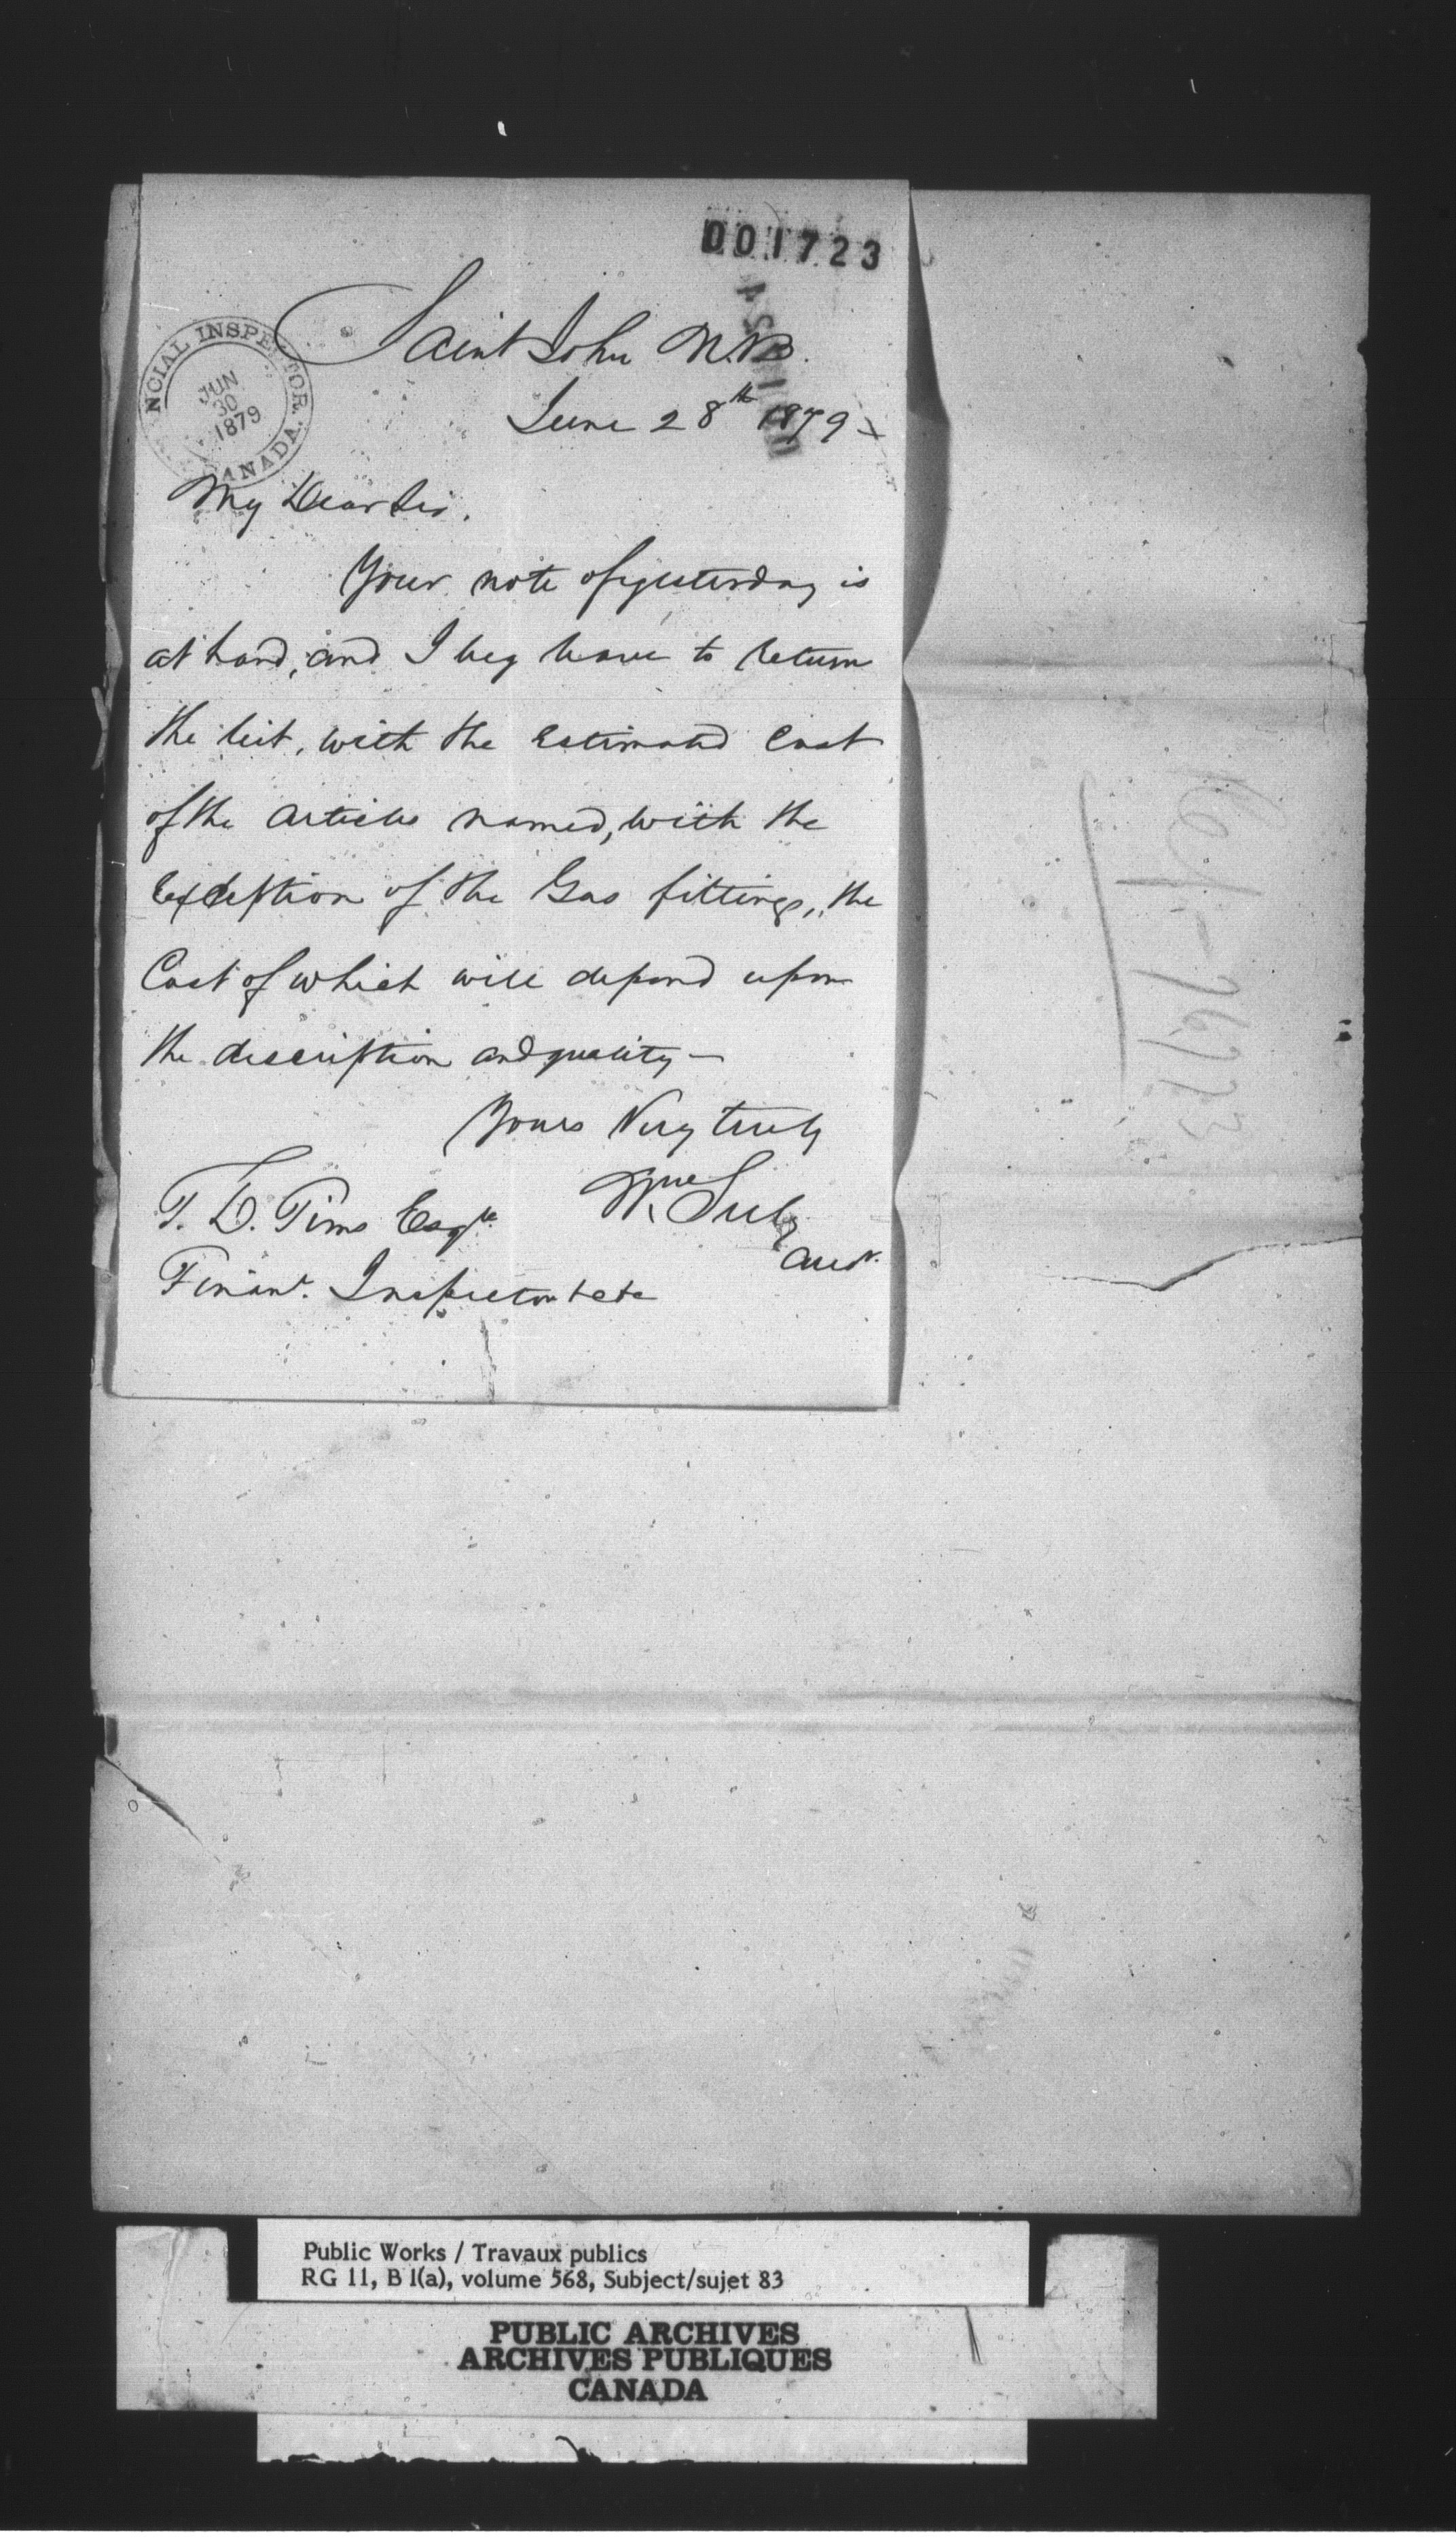 001723
Saint John N.B.
June 28th 1879
FINANCIAL INSPECTOR. CANADA.
JUN
30
1879
My Dear Sir,
Your note of yesterday is
at hand, and I beg leave to return
the list, with the estimated Cost
of the articles named, with the
exception of the Gas fittings, the
Cost of which will depend upon
the description and quality —
Yours Very truly
Wm
T. D. Tims Esqre
Finanl. Inspector &c &c
Public Works / Travaux publics
RG 11, B 1(a), volume 568, Subject/sujet 83
PUBLIC ARCHIVES
ARCHIVES PUBLIQUES
CANADA